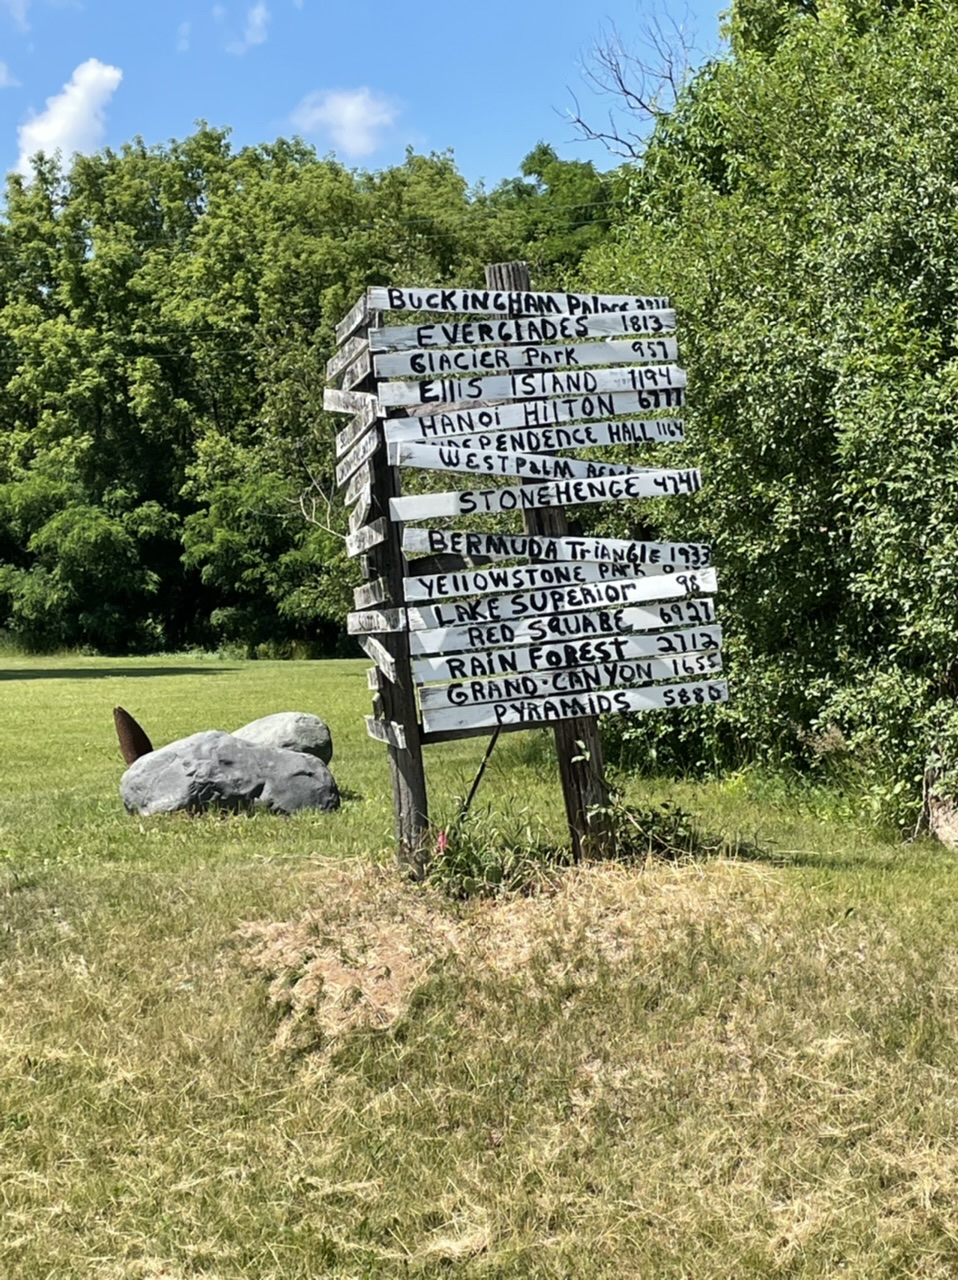 BUCKINGHAM PALACE
EVERGLADES 1813
GLACIER PARK 957
ELLIS ISLAND 1194
HANOI HILTON 6777
INDEPENDENCE HALL 1164
WEST PALM BEACH
STONEHENGE 4741
BERMUDA TRIANGLE 1933
YELLOWSTONE PARK
LAKE SUPERIOR 98
RED SQUARE 6927
RAIN FOREST 2712
GRAND·CANYON 1655
PYRAMIDS 5880